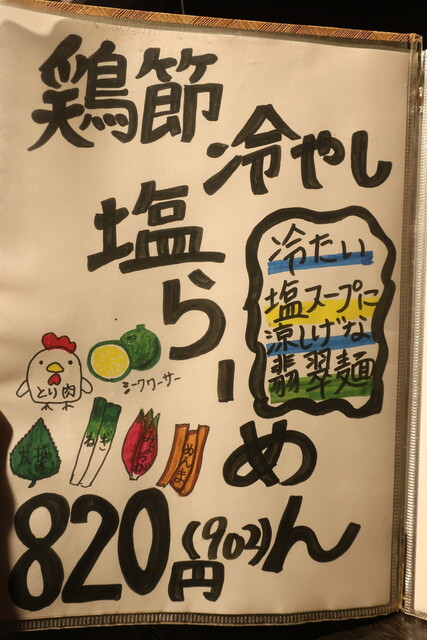 鶏節
冷やし
塩らーめん
冷たい
塩スープに
涼しげな
翡翠麺
シークワーサー
とり肉
ねぎ
みょうが
めんま
820円
(902)